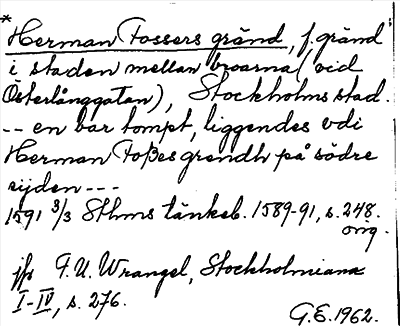 * Herman Fossers gränd, f, gränd
i staden mellan broarna (vid
Österlånggatan), Stockholms stad.
-- en bar tompt, liggendes vdi
Herman Foßes grendh på södre
sijden ---
1591 3/3 Sthms tänkeb. 1589-91, s. 248.
orig.
jfr F.U. Wrangel, Stockholmiana
I-IV, s. 276.
G.E. 1962.